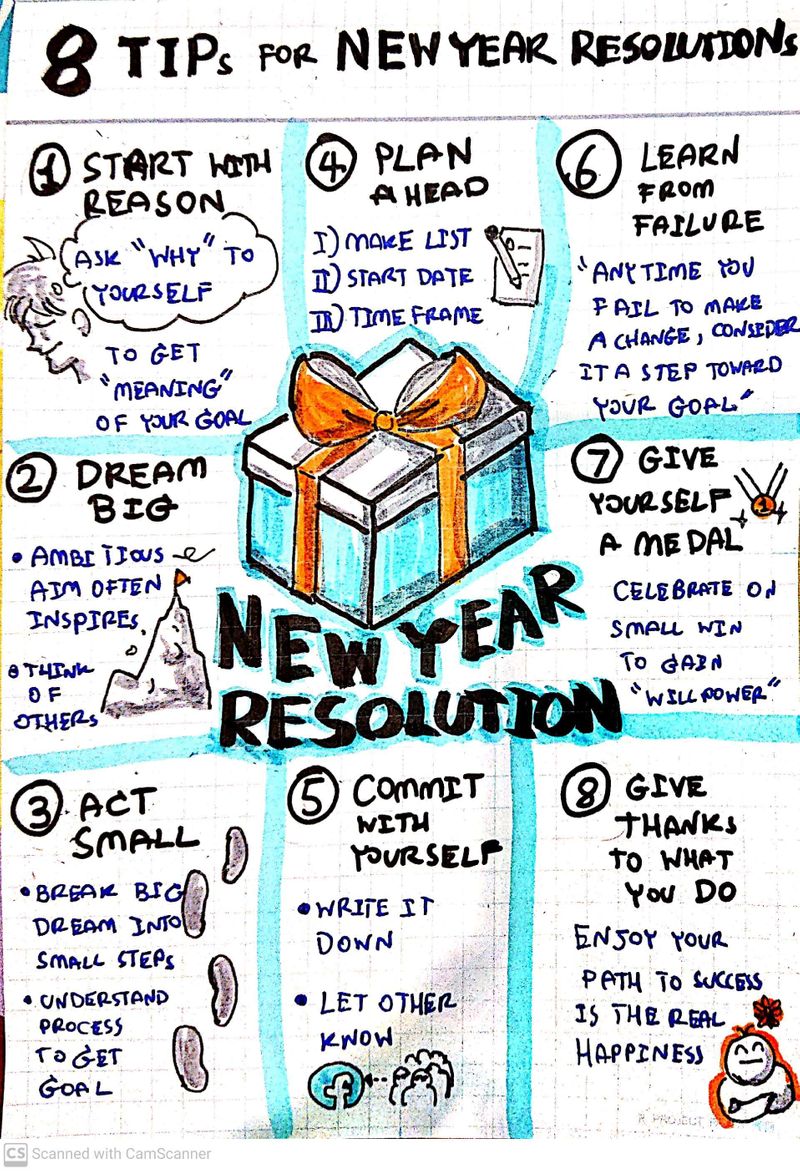 8 TIPs FOR NEW YEAR RESOLUTIONS
1 START WITH
REASON
ASK "WHY" TO
YOURSELF
TO GET
"MEANING"
OF YOUR GOAL
2 DREAM
BIG
• AMBITIOUS
AIM OFTEN
INSPIRES
• THINK
OF
OTHERS
3 ACT
SMALL
• BREAK BIG
DREAM INTO
SMALL STEPS
• UNDERSTAND
PROCESS
TO GET
GOAL
4 PLAN
AHEAD
I) MAKE LIST
II) START DATE
III) TIME FRAME
NEW YEAR
RESOLUTION
5 COMMIT
WITH
YOURSELF
• WRITE IT
DOWN
• LET OTHER
KNOW
f
6 LEARN
FROM
FAILURE
"ANYTIME YOU
FAIL TO MAKE
A CHANGE, CONSIDER
IT A STEP TOWARD
YOUR GOAL"
7 GIVE
YOURSELF
A MEDAL
1
CELEBRATE ON
SMALL WIN
TO GAIN
"WILLPOWER"
8 GIVE
THANKS
TO WHAT
YOU DO
ENJOY YOUR
PATH TO SUCCESS
IS THE REAL
HAPPINESS
CS Scanned with CamScanner